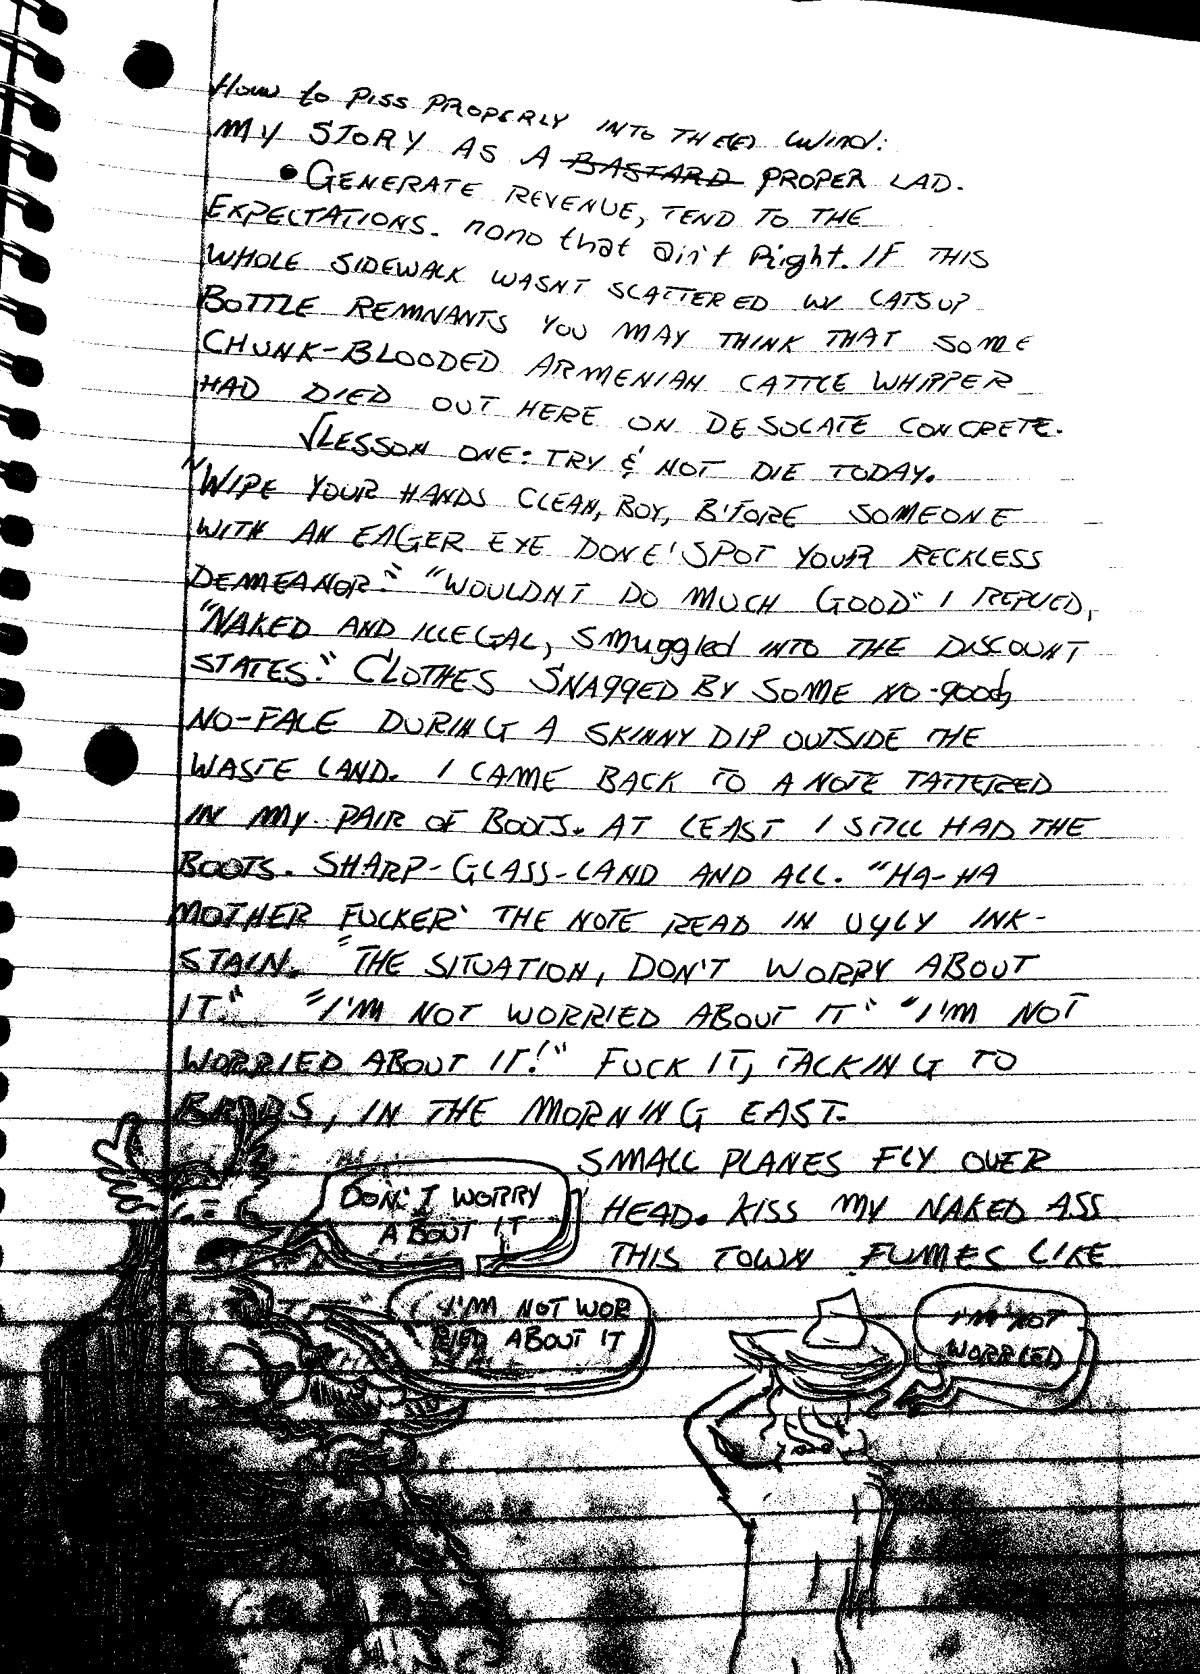 How to PISS PROPERLY INTO THEE WIND:
MY STORY AS A BASTARD PROPER LAD.
• GENERATE REVENUE, TEND TO THE
EXPECTATIONS. nono that ain't Right. IF THIS
WHOLE SIDEWALK WASNT SCATTERED W/ CATSUP
BOTTLE REMNANTS YOU MAY THINK THAT SOME
CHUNK-BLOODED ARMENIAN CATTLE WHIPPER
HAD DIED OUT HERE ON DESOLATE CONCRETE.
√LESSON ONE: TRY & NOT DIE TODAY.
"WIPE YOUR HANDS CLEAN, BOY, B'FORE SOMEONE
WITH AN EAGER EYE DONE' SPOT YOUR RECKLESS
DEMEANOR." "WOULDNT DO MUCH GOOD" I REPLIED,
"NAKED AND ILLEGAL, SMuggled INTO THE DISCOUNT
STATES." CLOTHES SNAGGED BY SOME NO-good,
NO-FACE DURING A SKINNY DIP OUTSIDE THE
WASTE LAND. I CAME BACK TO A NOTE TATTERED
IN MY PAIR OF BOOTS. AT LEAST I STILL HAD THE
BOOTS. SHARP-GLASS-LAND AND ALL. "HA-HA
MOTHER FUCKER" THE NOTE READ IN UGLY INK-
STAIN. "THE SITUATION, DON'T WORRY ABOUT
IT." "I'M NOT WORRIED ABOUT IT" "I'M NOT
WORRIED ABOUT IT!" FUCK IT, TALKING TO
BIRDS, IN THE MORNING EAST.
SMALL PLANES FLY OVER
HEAD. KISS MY NAKED ASS
THIS TOWN FUMES LIKE
DON'T WORRY
ABOUT IT
I'M NOT WOR
RIED ABOUT IT
I'M NOT
WORRIED